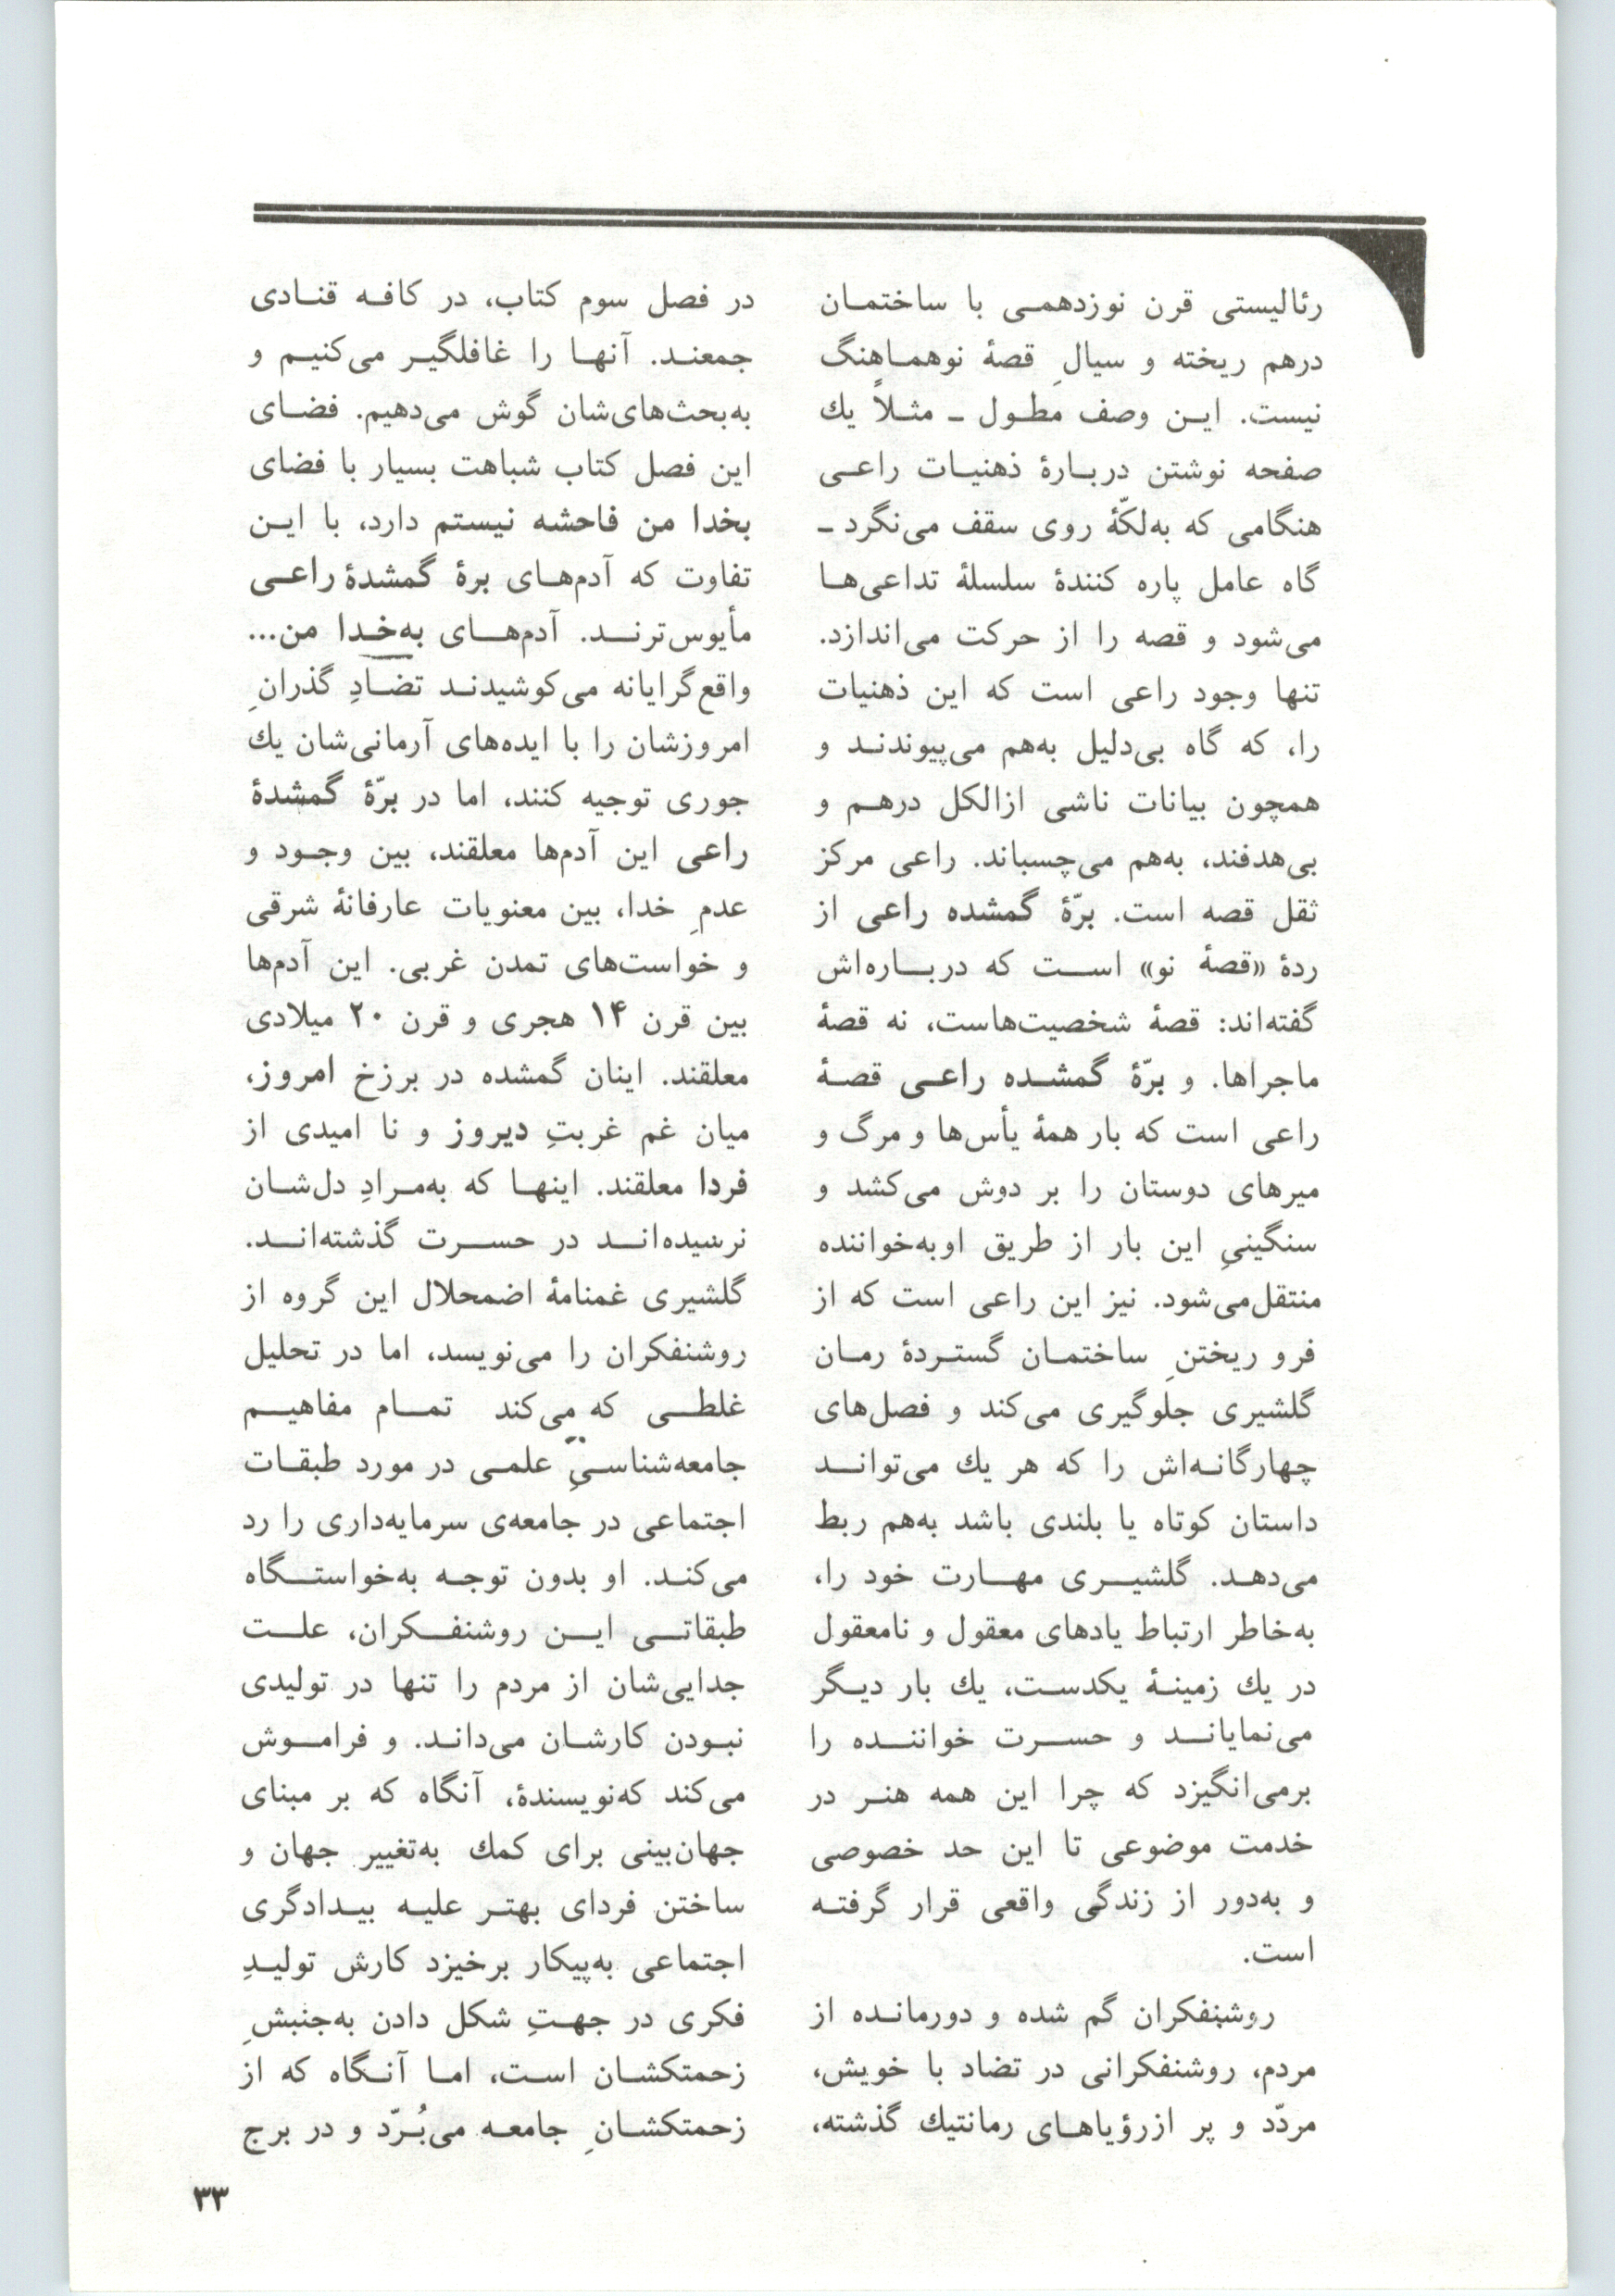 رئالیستی قرن نوزدهمی با ساختمان
درهم ریخته و سیالِ قصهٔ نوهماهنگ
نیست. این وصف مطول ـ مثلاً یك
صفحه نوشتن دربارهٔ ذهنیات راعی
هنگامی که به‌لکّهٔ روی سقف می‌نگرد ـ
گاه عامل پاره کنندهٔ سلسلهٔ تداعی‌ها
می‌شود و قصه را از حرکت می‌اندازد.
تنها وجود راعی است که این ذهنیات
را، که گاه بی‌دلیل به‌هم می‌پیوندند و
همچون بیانات ناشی ازالکل درهم و
بی‌هدفند، به‌هم می‌چسباند. راعی مرکز
ثقل قصه است. برّهٔ گمشده راعی از
ردهٔ «قصهٔ نو» است که درباره‌اش
گفته‌اند: قصهٔ شخصیت‌هاست، نه قصهٔ
ماجراها. و برّهٔ گمشده راعی قصهٔ
راعی است که بار همهٔ یأس‌ها و مرگ و
میرهای دوستان را بر دوش می‌کشد و
سنگینیِ این بار از طریق اوبه‌خواننده
منتقل‌می‌شود. نیز این راعی است که از
فرو ریختنِ ساختمان گستردهٔ رمان
گلشیری جلوگیری می‌کند و فصل‌های
چهارگانه‌اش را که هر یك می‌تواند
داستان کوتاه یا بلندی باشد به‌هم ربط
می‌دهد. گلشیری مهارت خود را،
به‌خاطر ارتباط یادهای معقول و نامعقول
در یك زمینهٔ یکدست، یك بار دیگر
می‌نمایاند و حسرت خواننده را
برمی‌انگیزد که چرا این همه هنر در
خدمت موضوعی تا این حد خصوصی
و به‌دور از زندگی واقعی قرار گرفته
است.
روشنفکران گم شده و دورمانده از
مردم، روشنفکرانی در تضاد با خویش،
مردّد و پر ازرؤیاهای رمانتیك گذشته،
در فصل سوم کتاب، در کافه قنادی
جمعند. آنها را غافلگیر می‌کنیم و
به‌بحث‌های‌شان گوش می‌دهیم. فضای
این فصل کتاب شباهت بسیار با فضای
بخدا من فاحشه نیستم دارد، با این
تفاوت که آدم‌های برهٔ گمشدهٔ راعی
مأیوس‌ترند. آدم‌های به‌خدا من...
واقع‌گرایانه می‌کوشیدند تضادِ گذرانِ
امروزشان را با ایده‌های آرمانی‌شان یك
جوری توجیه کنند، اما در برّهٔ گمشدهٔ
راعی این آدم‌ها معلقند، بین وجود و
عدمِ خدا، بین معنویات عارفانهٔ شرقی
و خواست‌های تمدن غربی. این آدم‌ها
بین قرن ۱۴ هجری و قرن ۲۰ میلادی
معلقند. اینان گمشده در برزخ امروز،
میان غم غربتِ دیروز و نا امیدی از
فردا معلقند. اینها که به‌مرادِ دل‌شان
نرسیده‌اند در حسرت گذشته‌اند.
گلشیری غمنامهٔ اضمحلال این گروه از
روشنفکران را می‌نویسد، اما در تحلیل
غلطی که می‌کند تمام مفاهیم
جامعه‌شناسیِ علمی در مورد طبقات
اجتماعی در جامعه‌ی سرمایه‌داری را رد
می‌کند. او بدون توجه به‌خواستگاه
طبقاتی این روشنفکران، علت
جدایی‌شان از مردم را تنها در تولیدی
نبودن کارشان می‌داند. و فراموش
می‌کند که‌نویسندهٔ، آنگاه که بر مبنای
جهان‌بینی برای کمك به‌تغییر جهان و
ساختن فردای بهتر علیه بیدادگری
اجتماعی به‌پیکار برخیزد کارش تولیدِ
فکری در جهتِ شکل دادن به‌جنبشِ
زحمتکشان است، اما آنگاه که از
زحمتکشانِ جامعه می‌بُرّد و در برج
۳۳